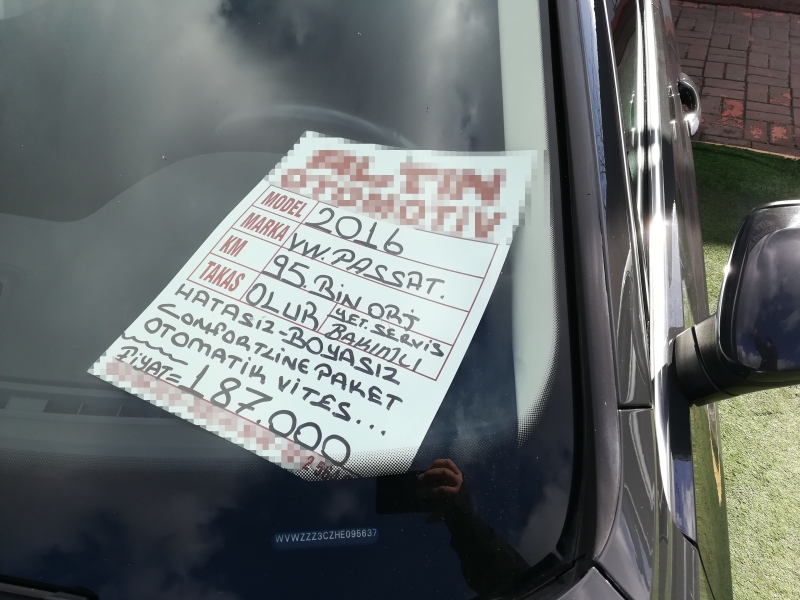 ALTIN
OTOMOTİV
MODEL 2016
MARKA VW. PASSAT.
KM 95.BİN ORJ
TAKAS OLUR YET. SERVİS
BAKIMLI
HATASIZ-BOYASIZ
COMFORTLİNE PAKET
OTOMATİK VİTES...
FİYAT= 187.000
WVWZZZ3CZHE095637